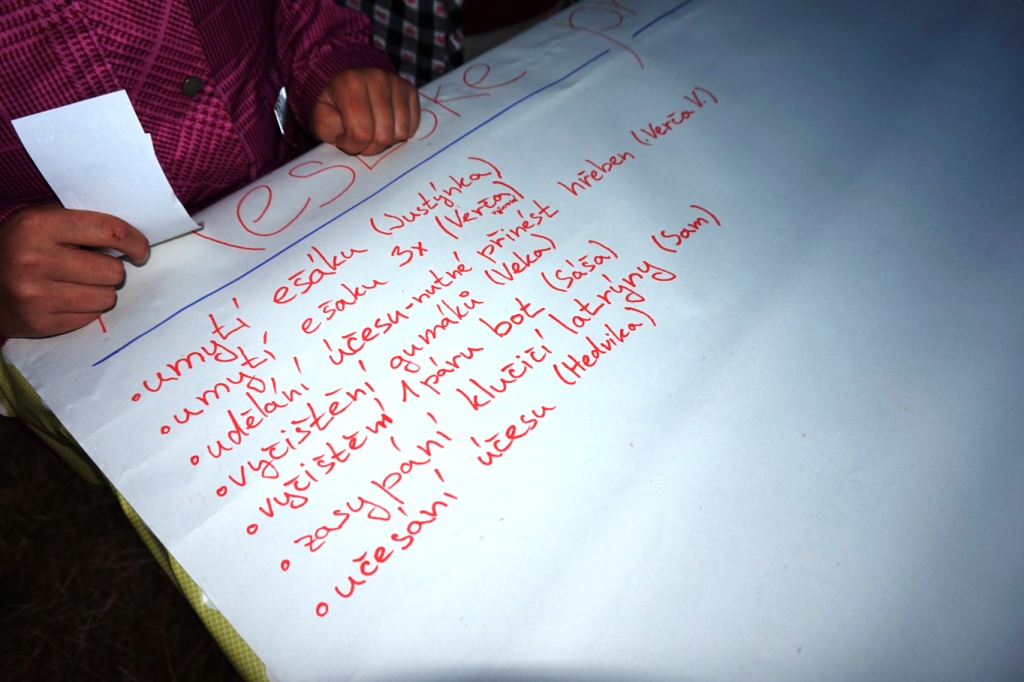 • umytí ešáku (Justýnka)
• umytí ešaku 3x (Verča)
• udělání účesu-nutné přinést hřeben (Verča V.)
• vyčištění gumáků (Veka)
• vyčištění 1 páru bot (Sáša)
• zasypání klučičí latríny (Sam)
• učesání účesu (Hedvika)